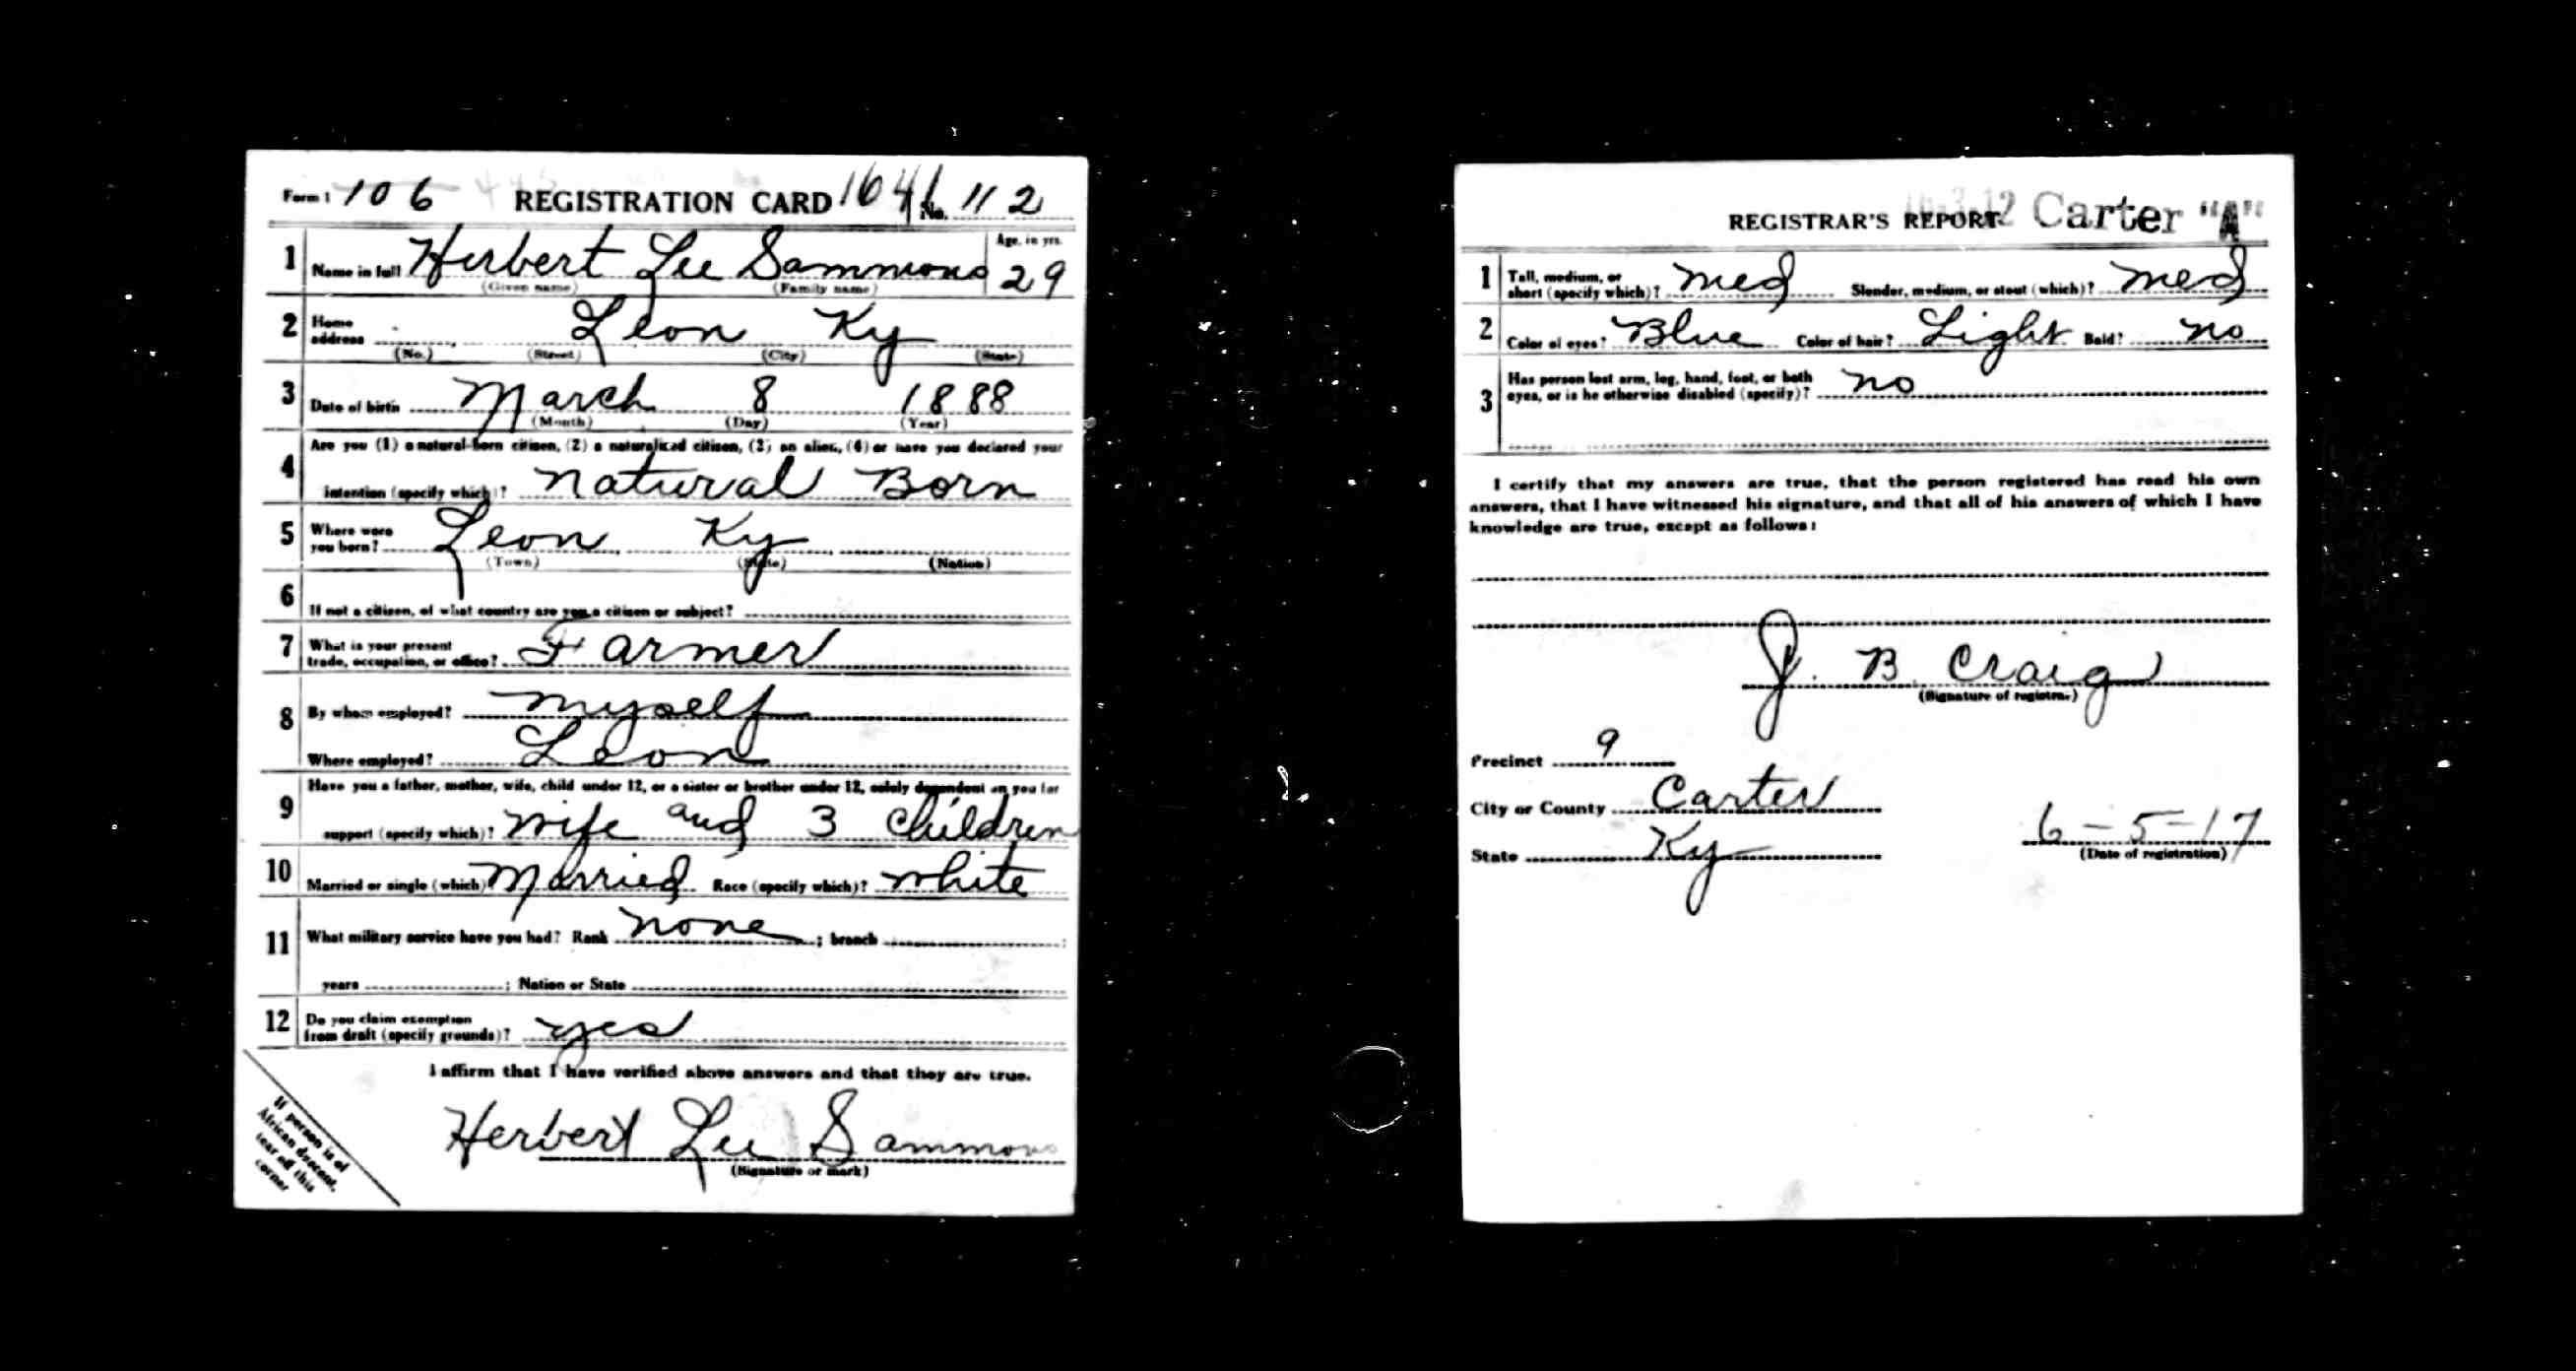 Form 1 106 REGISTRATION CARD 1641 No. 112
1 Name in full Herbert Lee Sammons Age, in yrs. 29
(Given name) (Family name)
2 Home address Leon Ky
(No.) (Street) (City) (State)
3 Date of birth March 8 1888
(Month) (Day) (Year)
4 Are you (1) a natural-born citizen, (2) a naturalized citizen, (3) an alien, (4) or have you declared your
intention (specify which)? Natural Born
5 Where were you born? Leon Ky
(Town) (State) (Nation)
6 If not a citizen, of what country are you a citizen or subject?
7 What is your present trade, occupation, or office? Farmer
8 By whom employed? myself
Where employed? Leon
9 Have you a father, mother, wife, child under 12, or a sister or brother under 12, solely dependent on you for
support (specify which)? Wife and 3 Children
10 Married or single (which)? Married Race (specify which)? White
11 What military service have you had? Rank none ; branch ;
years ; Nation or State
12 Do you claim exemption from draft (specify grounds)? yes
I affirm that I have verified above answers and that they are true.
Herbert Lee Sammons
(Signature or mark)
If person is of
African descent,
tear off this
corner
REGISTRAR'S REPORT Carter "A"
1 Tall, medium, or short (specify which)? med Slender, medium, or stout (which)? med
2 Color of eyes? Blue Color of hair? Light Bald? no
3 Has person lost arm, leg, hand, foot, or both
eyes, or is he otherwise disabled (specify)? no
I certify that my answers are true, that the person registered has read his own
answers, that I have witnessed his signature, and that all of his answers of which I have
knowledge are true, except as follows:
J. B. Craig
(Signature of registrar)
Precinct 9
City or County Carter
State Ky
6-5-17
(Date of registration)